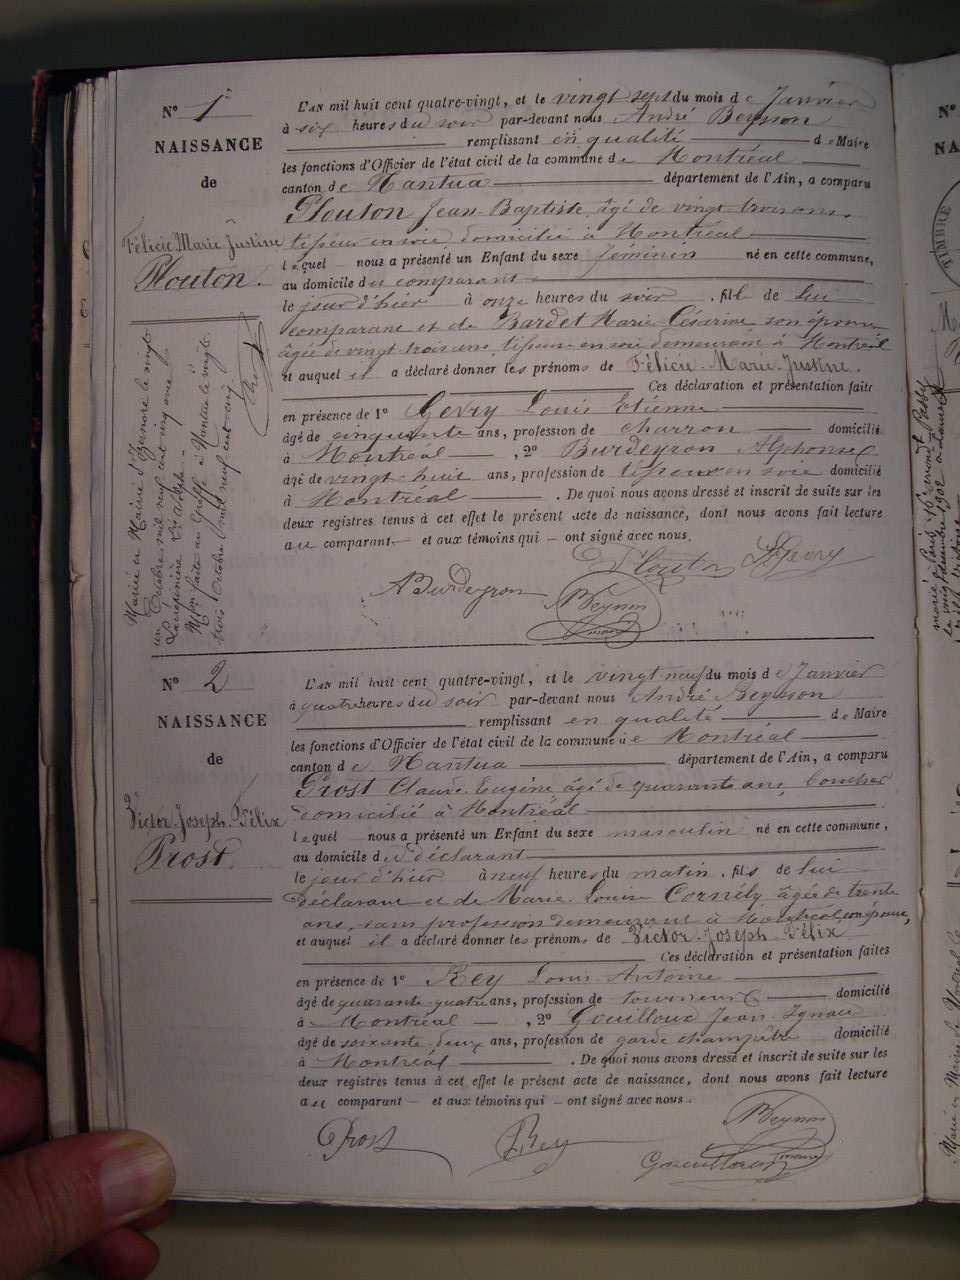 N° 1
NAISSANCE
de
Félicie Marie Justine
Plouton.
L'AN mil huit cent quatre-vingt, et le vingt-sept du mois de Janvier
à six heures du soir par-devant nous André Beynon
remplissant en qualité de Maire
les fonctions d'Officier de l'état civil de la commune de Montréal
canton de Nantua département de l'Ain, a comparu
Plouton Jean-Baptiste, âgé de vingt-trois ans,
tisseur en soie, domicilié à Montréal
lequel nous a présenté un Enfant du sexe féminin né en cette commune,
au domicile du comparant
le jour d'hier à onze heures du soir, fille de lui
comparant et de Bardet Marie Césarine son épouse
âgée de vingt-trois ans, tisseur en soie demeurant à Montréal
et auquel il a déclaré donner les prénoms de Félicie-Marie-Justine.
Ces déclaration et présentation faites
en présence de 1° Gevry Louis Etienne
âgé de cinquante ans, profession de charron domicilié
à Montréal, 2° Burdeyron Alphonse
âgé de vingt-huit ans, profession de tisseur en soie domicilié
à Montréal. De quoi nous avons dressé et inscrit de suite sur les
deux registres tenus à cet effet le présent acte de naissance, dont nous avons fait lecture
au comparant et aux témoins qui ont signé avec nous.
Plouton Gevry
A Burdeyron
Beynon
maire
Mariée en Mairie d'Izernore le vingt-
un Octobre mil neuf cent cinq avec
Mon faite au Greffe à Nantua le vingt-
trois Octobre mil neuf cent cinq
N° 2
NAISSANCE
de
Victor-Joseph-Félix
Prost.
L'AN mil huit cent quatre-vingt, et le vingt-neuf du mois de Janvier
à quatre heures du soir par-devant nous André Beynon
remplissant en qualité de Maire
les fonctions d'Officier de l'état civil de la commune de Montréal
canton de Nantua département de l'Ain, a comparu
Prost Claude Eugène âgé de quarante ans, boucher
domicilié à Montréal
lequel nous a présenté un Enfant du sexe masculin né en cette commune,
au domicile du déclarant
le jour d'hier à neuf heures du matin, fils de lui
déclarant et de Marie-Louise Cornély âgée de trente
ans, sans profession demeurant à Montréal, son épouse,
et auquel il a déclaré donner les prénoms de Victor-Joseph-Félix
Ces déclaration et présentation faites
en présence de 1° Rey Louis Antoine
âgé de quarante-quatre ans, profession de tourneur domicilié
à Montréal, 2° Gouilloux Jean Ignace
âgé de soixante-deux ans, profession de garde champêtre domicilié
à Montréal. De quoi nous avons dressé et inscrit de suite sur les
deux registres tenus à cet effet le présent acte de naissance, dont nous avons fait lecture
au comparant et aux témoins qui ont signé avec nous.
Prost Rey Beynon
Gouilloux maire
N°
NA
TIMBRE